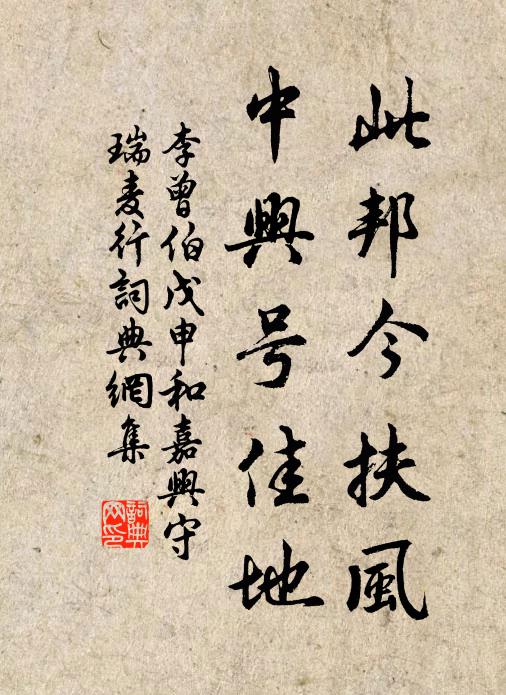 此邦今扶風
中興号佳地
李曾伯戊申和嘉興守
瑞麦行詞典網集
詞典
网印